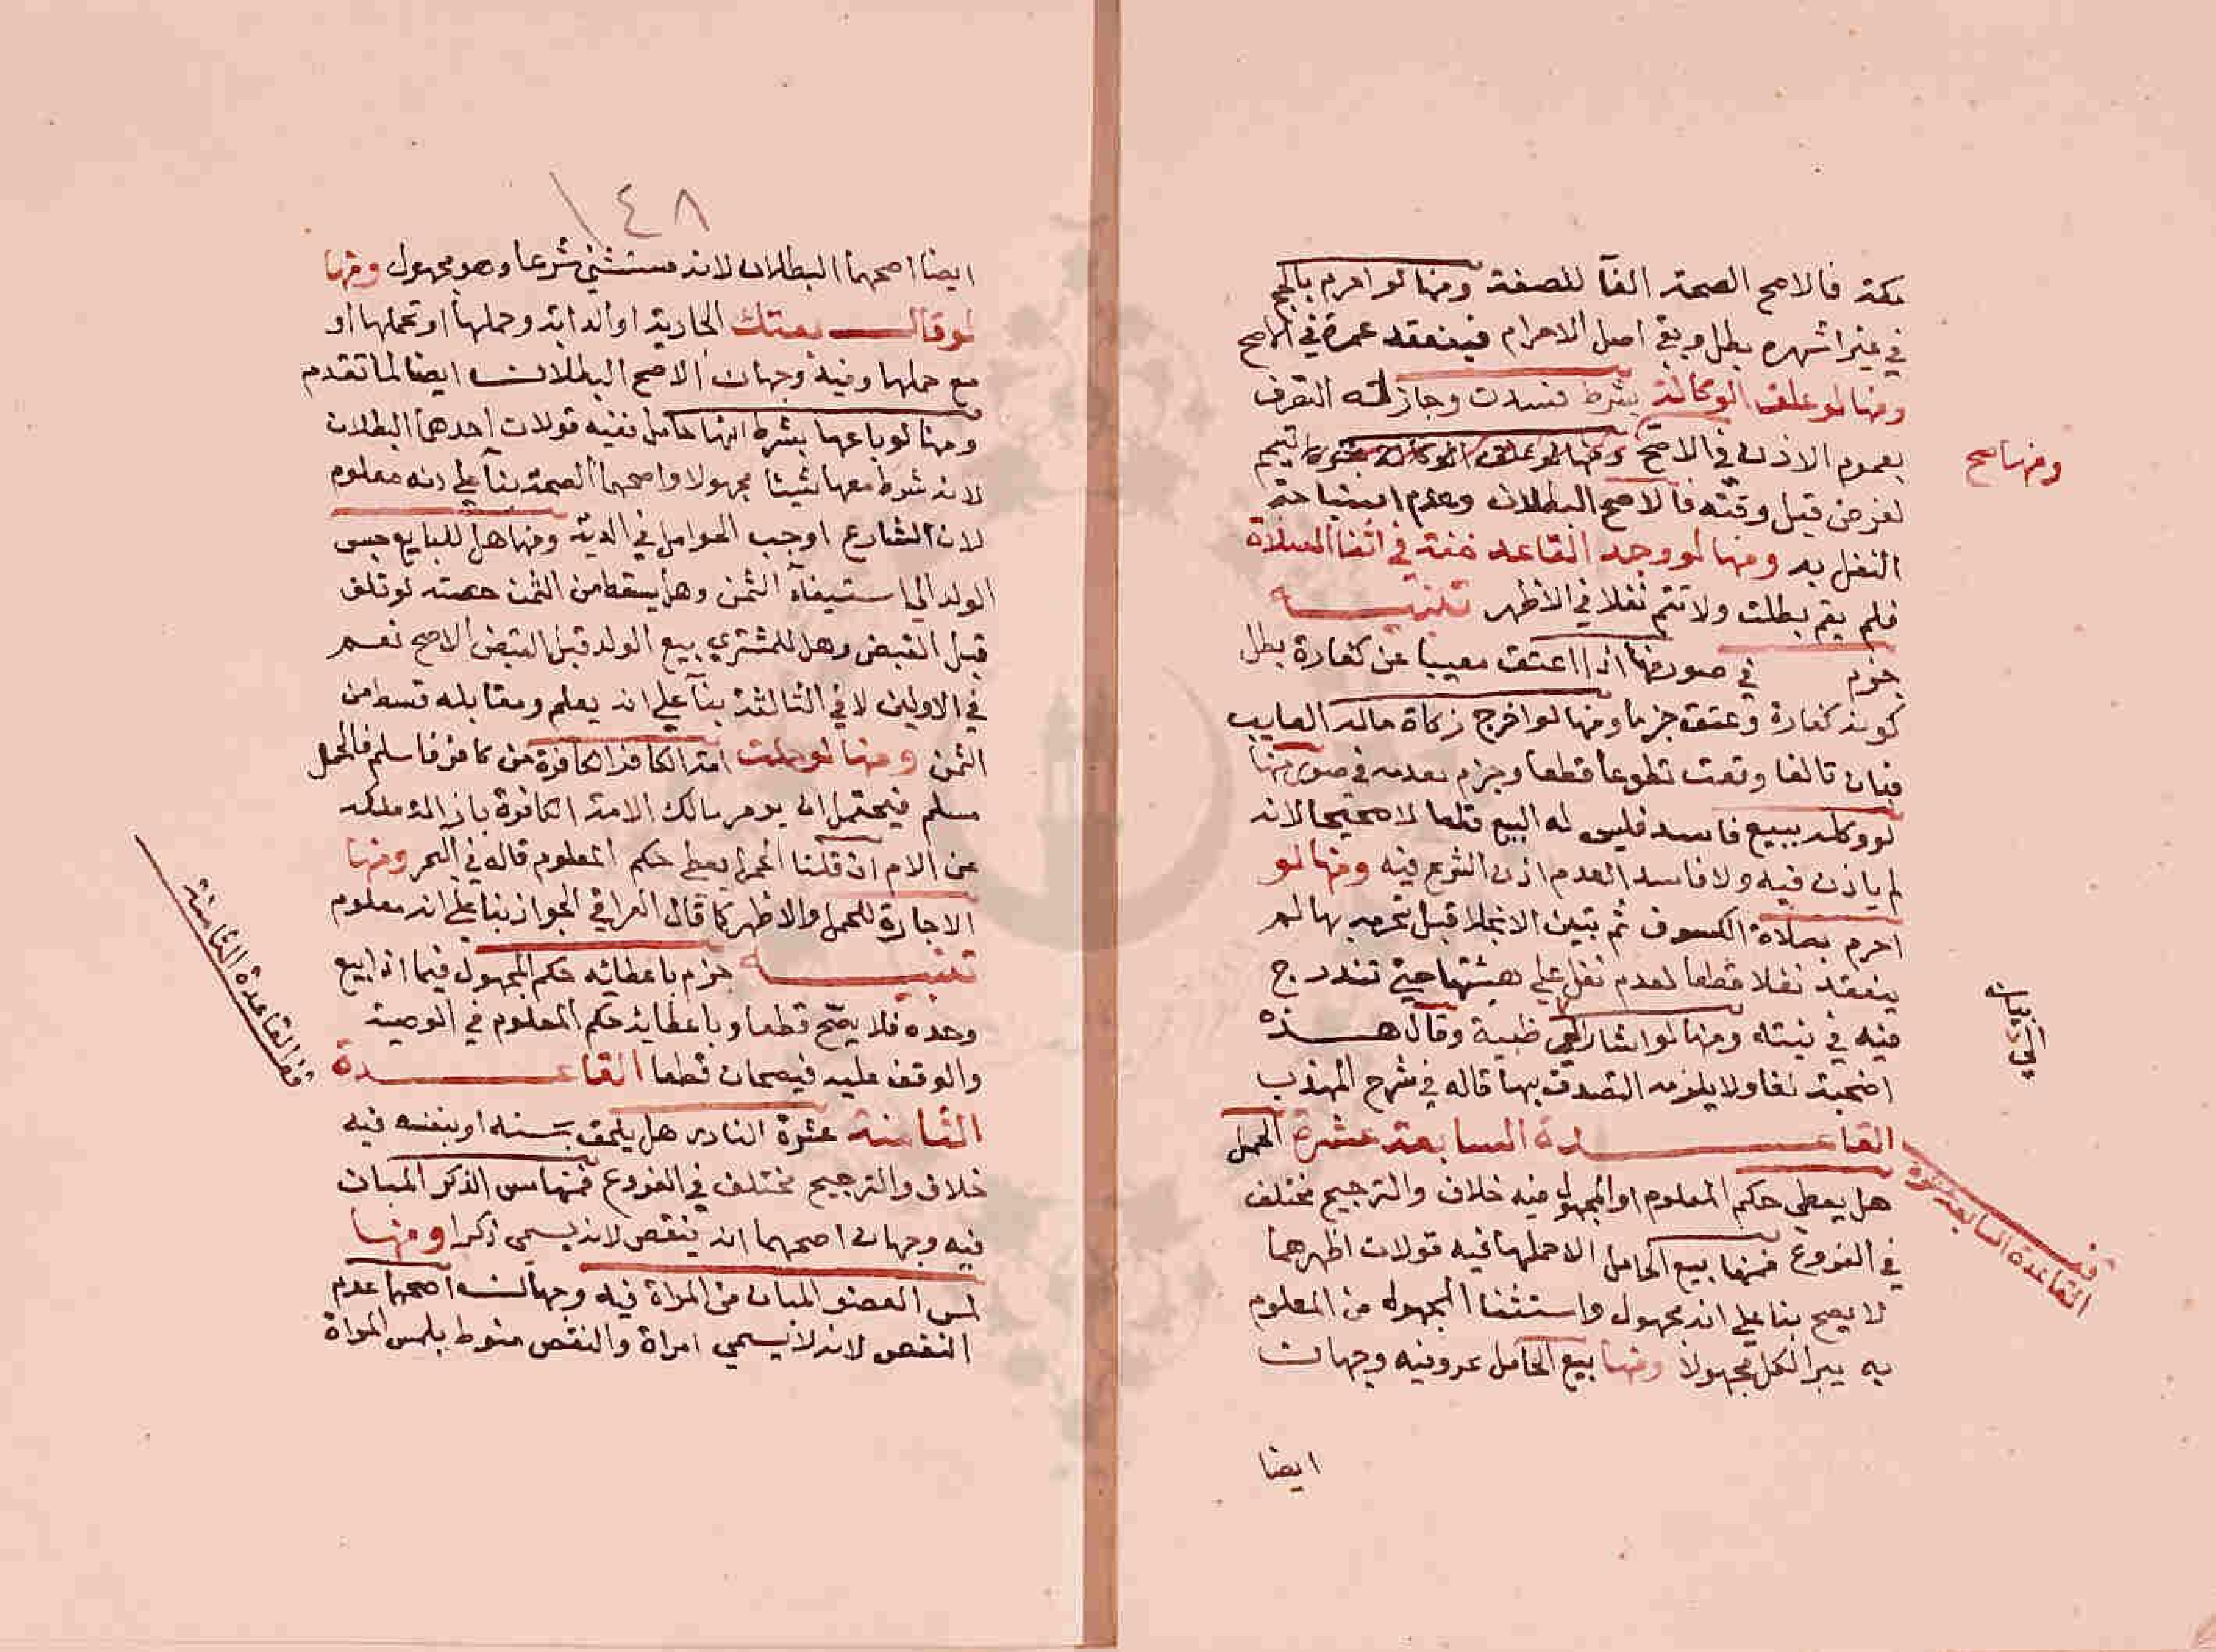 مكة فالاصح الصحة الغآ للصفة ومنها لو احرم بالحج
في غير اشهره بطل وبقي اصل الاحرام فينعقد عمرة في الاصح
ومنها لو علق الوكالة بشرط فسدت وجاز له التصرف
بعموم الاذن في الاصح تيمم
ومنها صح
لفرض قبل وقته فالاصح البطلان وعدم استباحة
النفل به ومنها لو وجد القاعد خفة في اثنا الصلاة
فلم يقم بطلت ولا تتم نفلا في الاظهر تنبيه
جزم في صور منها اذا اعتق معيبا عن كفارة بطل
كونه كفارة وعتق جزما ومنها لو اخرج زكاة ماله الغايب
فبان تالفا وقعت تطوعا قطعا وجزم بعدمه في صور منها
لو وكله ببيع فاسد فليس له البيع قطعا لا صحيحا لانه
لم ياذن فيه ولا فاسد العدم اذن الشرع فيه ومنها لو
احرم بصلاة الكسوف ثم تبين الانجلا قبل تحرمه بها لم
ينعقد نفلا قطعا لعدم نفل علي هيئتها حتي تندرج
فيه في نيته ومنها لو اشار الي ظبية وقال هذه
اضحية لغا ولا يلزمه التصدق بها قاله في شرح المهذب
القاعدة السابعة عشرة الحمل
هل يعطي حكم المعلوم او المجهول فيه خلاف والترجيح مختلف
في الفروع فمنها بيع الحامل الا حملها فيه قولان اظهرهما
لا يصح بنا علي انه مجهول واستثنا المجهول من المعلوم
به يبر الكل مجهولا ومنها بيع الحامل بحر وفيه وجهان
ايضا
قف القاعدة السابعة عشرة
١٤٨
ايضا اصحهما البطلان لانه مستثني شرعا وهو مجهول ومنها
لو قال بعتك الجارية او الدابة وحملها او بحملها او
مع حملها وفيه وجهان الاصح البطلان ايضا لما تقدم
ومنها لو باعها بشرط انها حامل ففيه قولان احدهما البطلان
لانه شرط معها شيئا مجهولا واصحهما الصحة بنآ علي انه معلوم
لان الشارع اوجب الحوامل في الدية ومنها هل للبايع حبس
الولد الي استيفآء الثمن وهل يسقط من الثمن حصته لو تلف
قبل القبض وهل للمشتري بيع الولد قبل القبض الاصح نعم
في الاولين لا في الثالثة بنآ علي انه يعلم ومقابله قسط من
الثمن ومنها لو حملت امة الكافر الكافرة من كافر فاسلم فالحمل
مسلم فيحتمل ان يومر مالك الامة الكافرة بازالة ملكه
عن الام ان قلنا الحمل يعطي حكم المعلوم قاله في البحر ومنها
الاجازة للحمل والاظهر كما قال العراقي الجواز بنا علي انه معلوم
تنبيه جزم باعطائه حكم المجهول فيما اذا بيع
وحده فلا يصح قطعا وباعطايه حكم المعلوم في الوصية
والوقف عليه فيصحان قطعا القاعدة
الثامنة عشرة النادر هل يلحق بجنسه او بنفسه فيه
خلاف والترجيح مختلف في الفروع فمنها مس الذكر المبان
فيه وجهان اصحهما انه ينقض لانه يسمي ذكرا ومنها
لمس العضو المبان من المراة فيه وجهان اصحهما عدم
النقض لانه لا يسمي امراة والنقض منوط بلمس المراة
قف القاعدة الثامنة